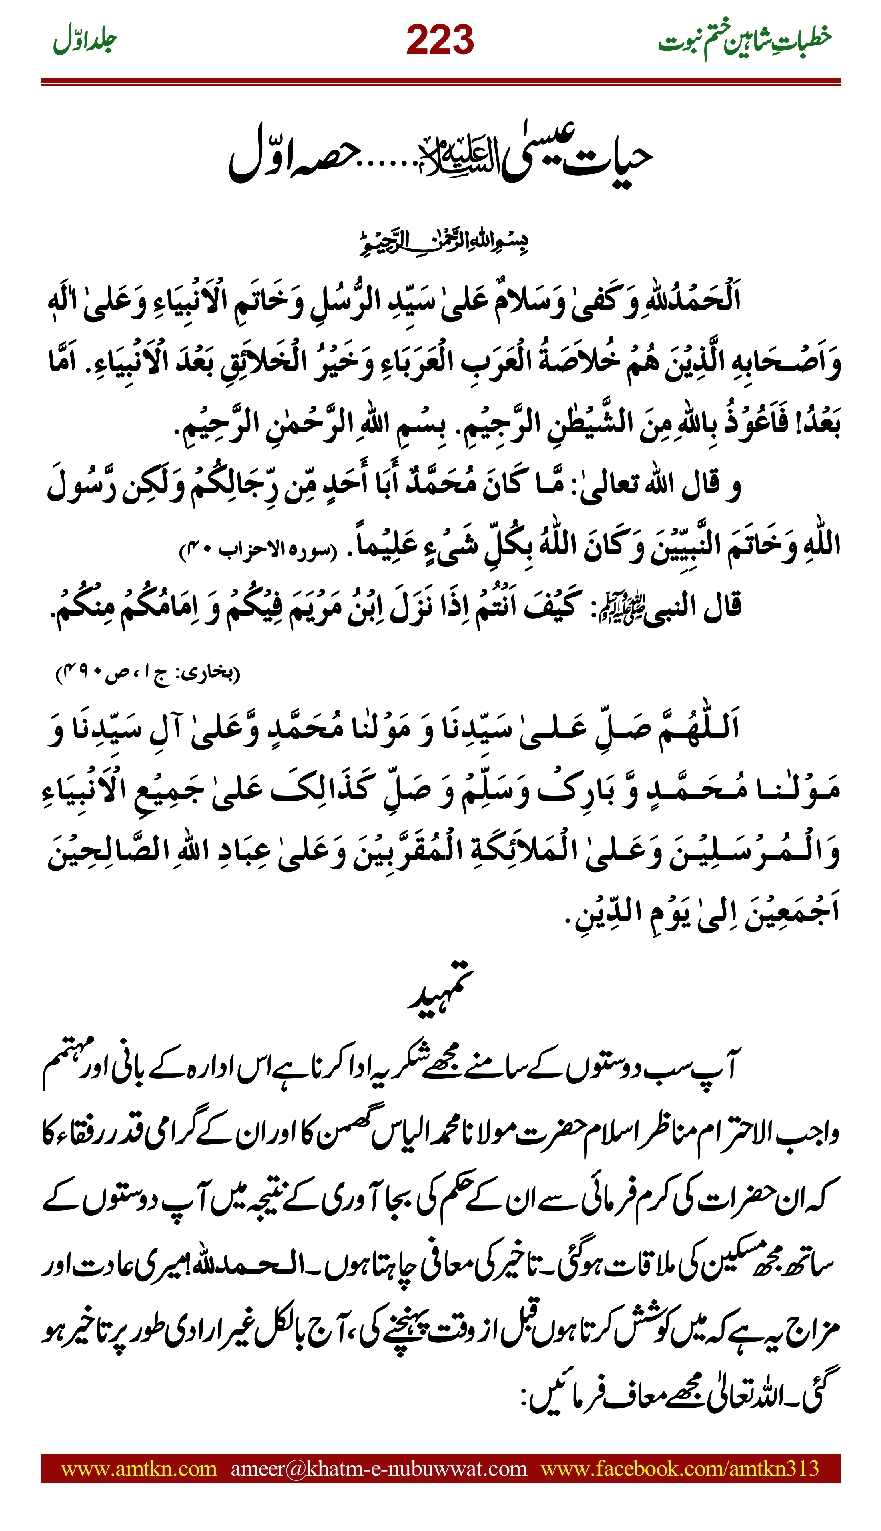 خطباتِ شاہین ختم نبوت 223 جلد اوّل
حیات عیسیٰ علیہ السلام......حصہ اوّل
بِسْمِ اللهِ الرَّحْمٰنِ الرَّحِيْمِ
اَلْحَمْدُلِلّٰهِ وَكَفىٰ وَسَلامٌ عَلىٰ سَيِّدِ الرُّسُلِ وَخَاتَمِ الْاَنْبِيَاءِ وَعَلىٰ اٰلِهٖ
وَاَصْحَابِهِ الَّذِيْنَ هُمْ خُلاَصَةُ الْعَرَبِ الْعَرَبَاءِ وَخَيْرُ الْخَلائِقِ بَعْدَ الْاَنْبِيَاءِ. اَمَّا
بَعْدُ! فَاَعُوْذُ بِاللهِ مِنَ الشَّيْطٰنِ الرَّجِيْمِ. بِسْمِ اللهِ الرَّحْمٰنِ الرَّحِيْمِ.
و قال الله تعالىٰ: مَّا كَانَ مُحَمَّدٌ أَبَا أَحَدٍ مِّن رِّجَالِكُمْ وَلَكِن رَّسُولَ
اللهِ وَخَاتَمَ النَّبِيِّيْنَ وَكَانَ اللهُ بِكُلِّ شَىْءٍ عَلِيْماً. (سورہ الاحزاب ۴۰)
قال النبی ﷺ: كَيْفَ اَنْتُمْ اِذَا نَزَلَ اِبْنُ مَرْيَمَ فِيْكُمْ وَ اِمَامُكُمْ مِنْكُمْ.
(بخاری: ج ۱، ص ۴۹۰)
اَللّٰهُمَّ صَلِّ عَلىٰ سَيِّدِنَا وَ مَوْلٰنَا مُحَمَّدٍ وَّعَلىٰ آلِ سَيِّدِنَا وَ
مَوْلٰنَا مُحَمَّدٍ وَّ بَارِكْ وَسَلِّمْ وَ صَلِّ كَذَالِكَ عَلىٰ جَمِيْعِ الْاَنْبِيَاءِ
وَالْمُرْسَلِيْنَ وَعَلىٰ الْمَلاَئِكَةِ الْمُقَرَّبِيْنَ وَعَلىٰ عِبَادِ اللهِ الصَّالِحِيْنَ
اَجْمَعِيْنَ اِلىٰ يَوْمِ الدِّيْنِ.
تمہید
آپ سب دوستوں کے سامنے مجھے شکریہ ادا کرنا ہے اس ادارہ کے بانی اور مہتمم
واجب الاحترام مناظر اسلام حضرت مولانا محمد الیاس گھمن کا اور ان کے گرامی قدر رفقاء کا
کہ ان حضرات کی کرم فرمائی سے ان کے حکم کی بجا آوری کے نتیجہ میں آپ دوستوں کے
ساتھ مجھ مسکین کی ملاقات ہوگئی۔ تاخیر کی معافی چاہتا ہوں۔ الحمدللہ! میری عادت اور
مزاج یہ ہے کہ میں کوشش کرتا ہوں قبل از وقت پہنچنے کی، آج بالکل غیر ارادی طور پر تاخیر ہو
گئی۔ اللہ تعالیٰ مجھے معاف فرمائیں:
www.amtkn.com ameer@khatm-e-nubuwwat.com www.facebook.com/amtkn313